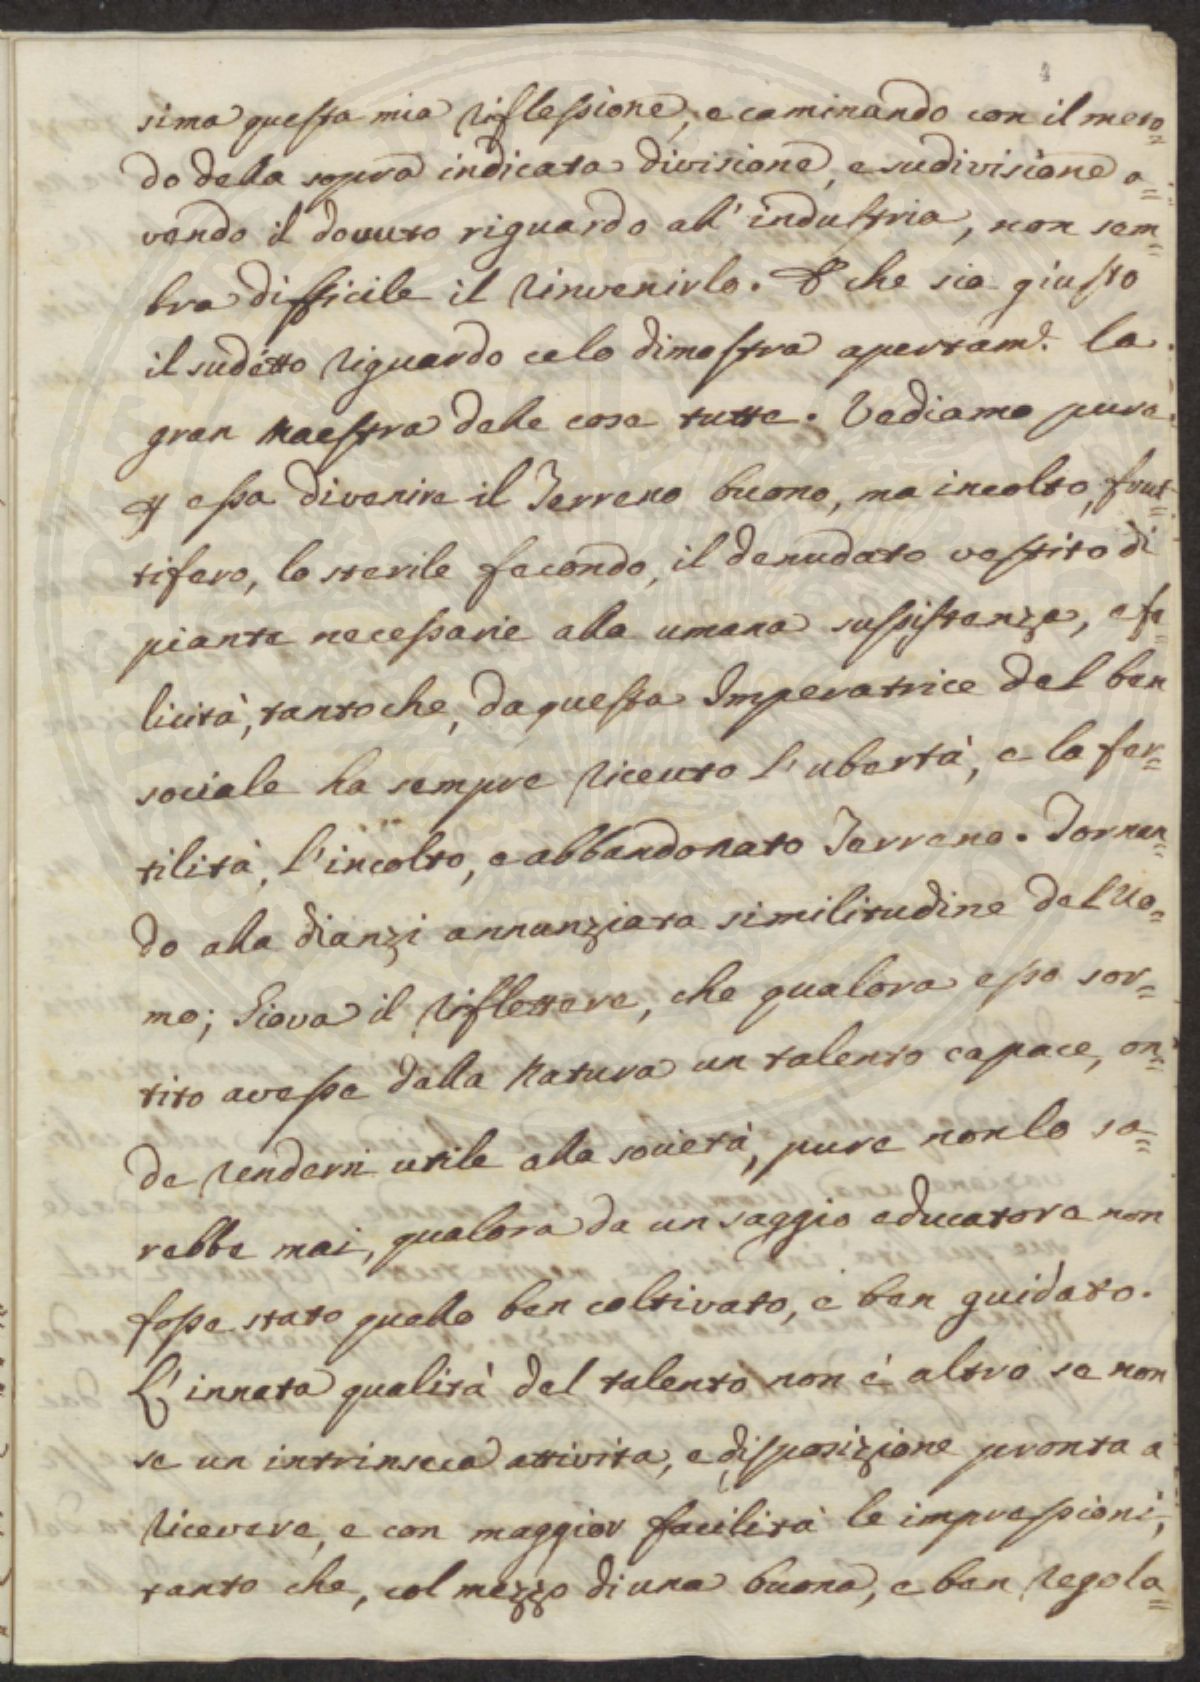 4
sima questa mia riflessione, e caminando con il meto=
do della sopra indicata divisione, e sudivisione a=
vendo il dovuto riguardo all' industria, non sem=
bra difficile il rinvenirlo. E che sia giusto
il sudetto riguardo celo dimostra apertam.e la
gran Maestra delle cose tutte. Vediamo pure
p essa divenire il Terreno buono, ma incolto, frut=
tifero, lo sterile fecondo, il denudato vestito di
piante necessarie alla umana sussistenza, e fe=
licità, tanto che, da questa Imperatrice del ben
sociale ha sempre riceuto l'ubertà, e la fer=
tilità, l'incolto, e abbandonato Terreno. Tornan=
do alla dianzi annunziata similitudine dell'Uo=
mo; Giova il riflettere, che qualora esso sor=
tito avesse dalla Natura un talento capace, on=
de rendersi utile alla società, pure non lo sa=
rebbe mai, qualora da un saggio educatore non
fosse stato quello ben coltivato, e ben guidato.
L'innata qualità del talento non è altro se non
se un intrinseca attivita, e disposizione pronta a
ricevere, e con maggior facilità le impressioni,
tanto che, col mezzo di una buona, e ben regola=